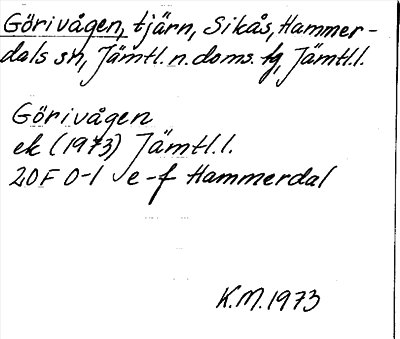 Görivågen, tjärn, Sikås, Hammer-
dals sn, Jämtl. n. doms. tg, Jämtl.l.
Görivågen
ek (1973) Jämtl.l.
20F 0-1 e-f Hammerdal
K.M. 1973